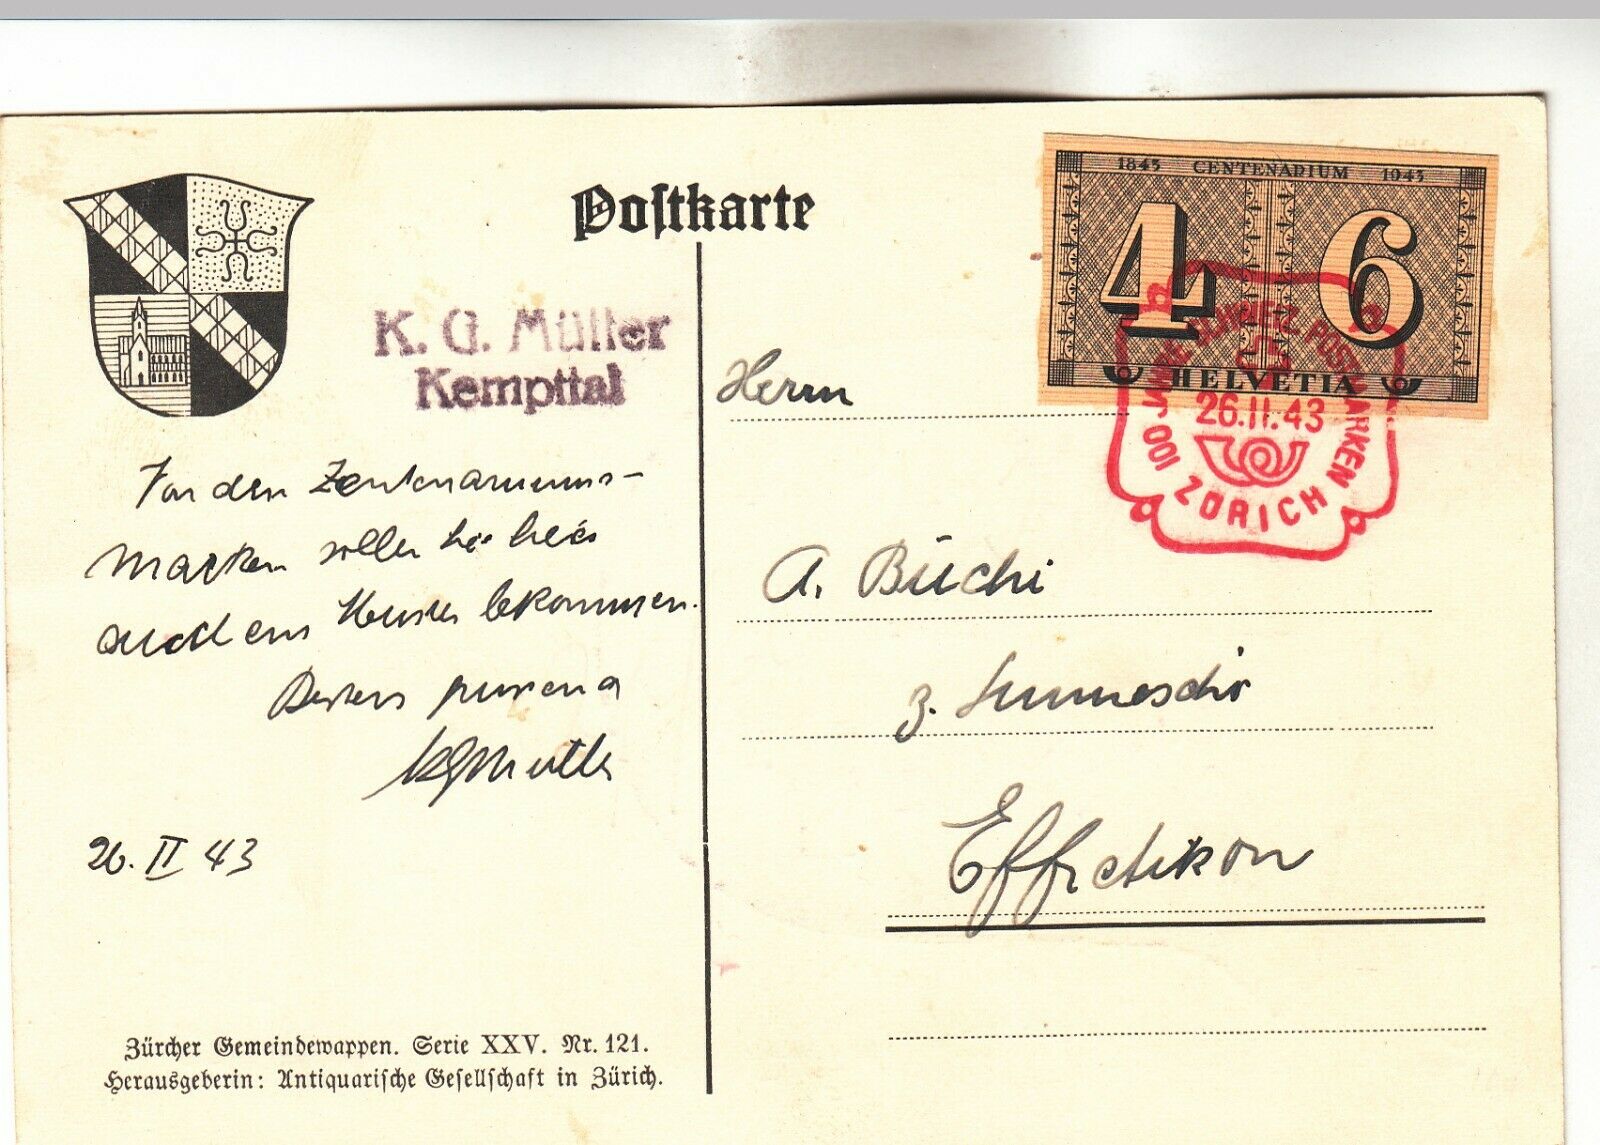 Postkarte
1843 CENTENARIUM 1943
4 6
HELVETIA
100 JAHRE SCHWEIZ. POSTMARKEN
26.II.43
ZÜRICH
K. G. Müller
Kempttal
Herrn
A. Büchi
z.
Effretikon
Von den Zentenariums-
marken sollen Sie
auch ein Muster bekommen.
Bestens
KGMüller
26. II 43
Zürcher Gemeindewappen. Serie XXV. Nr. 121.
Herausgeberin: Antiquarische Gesellschaft in Zürich.